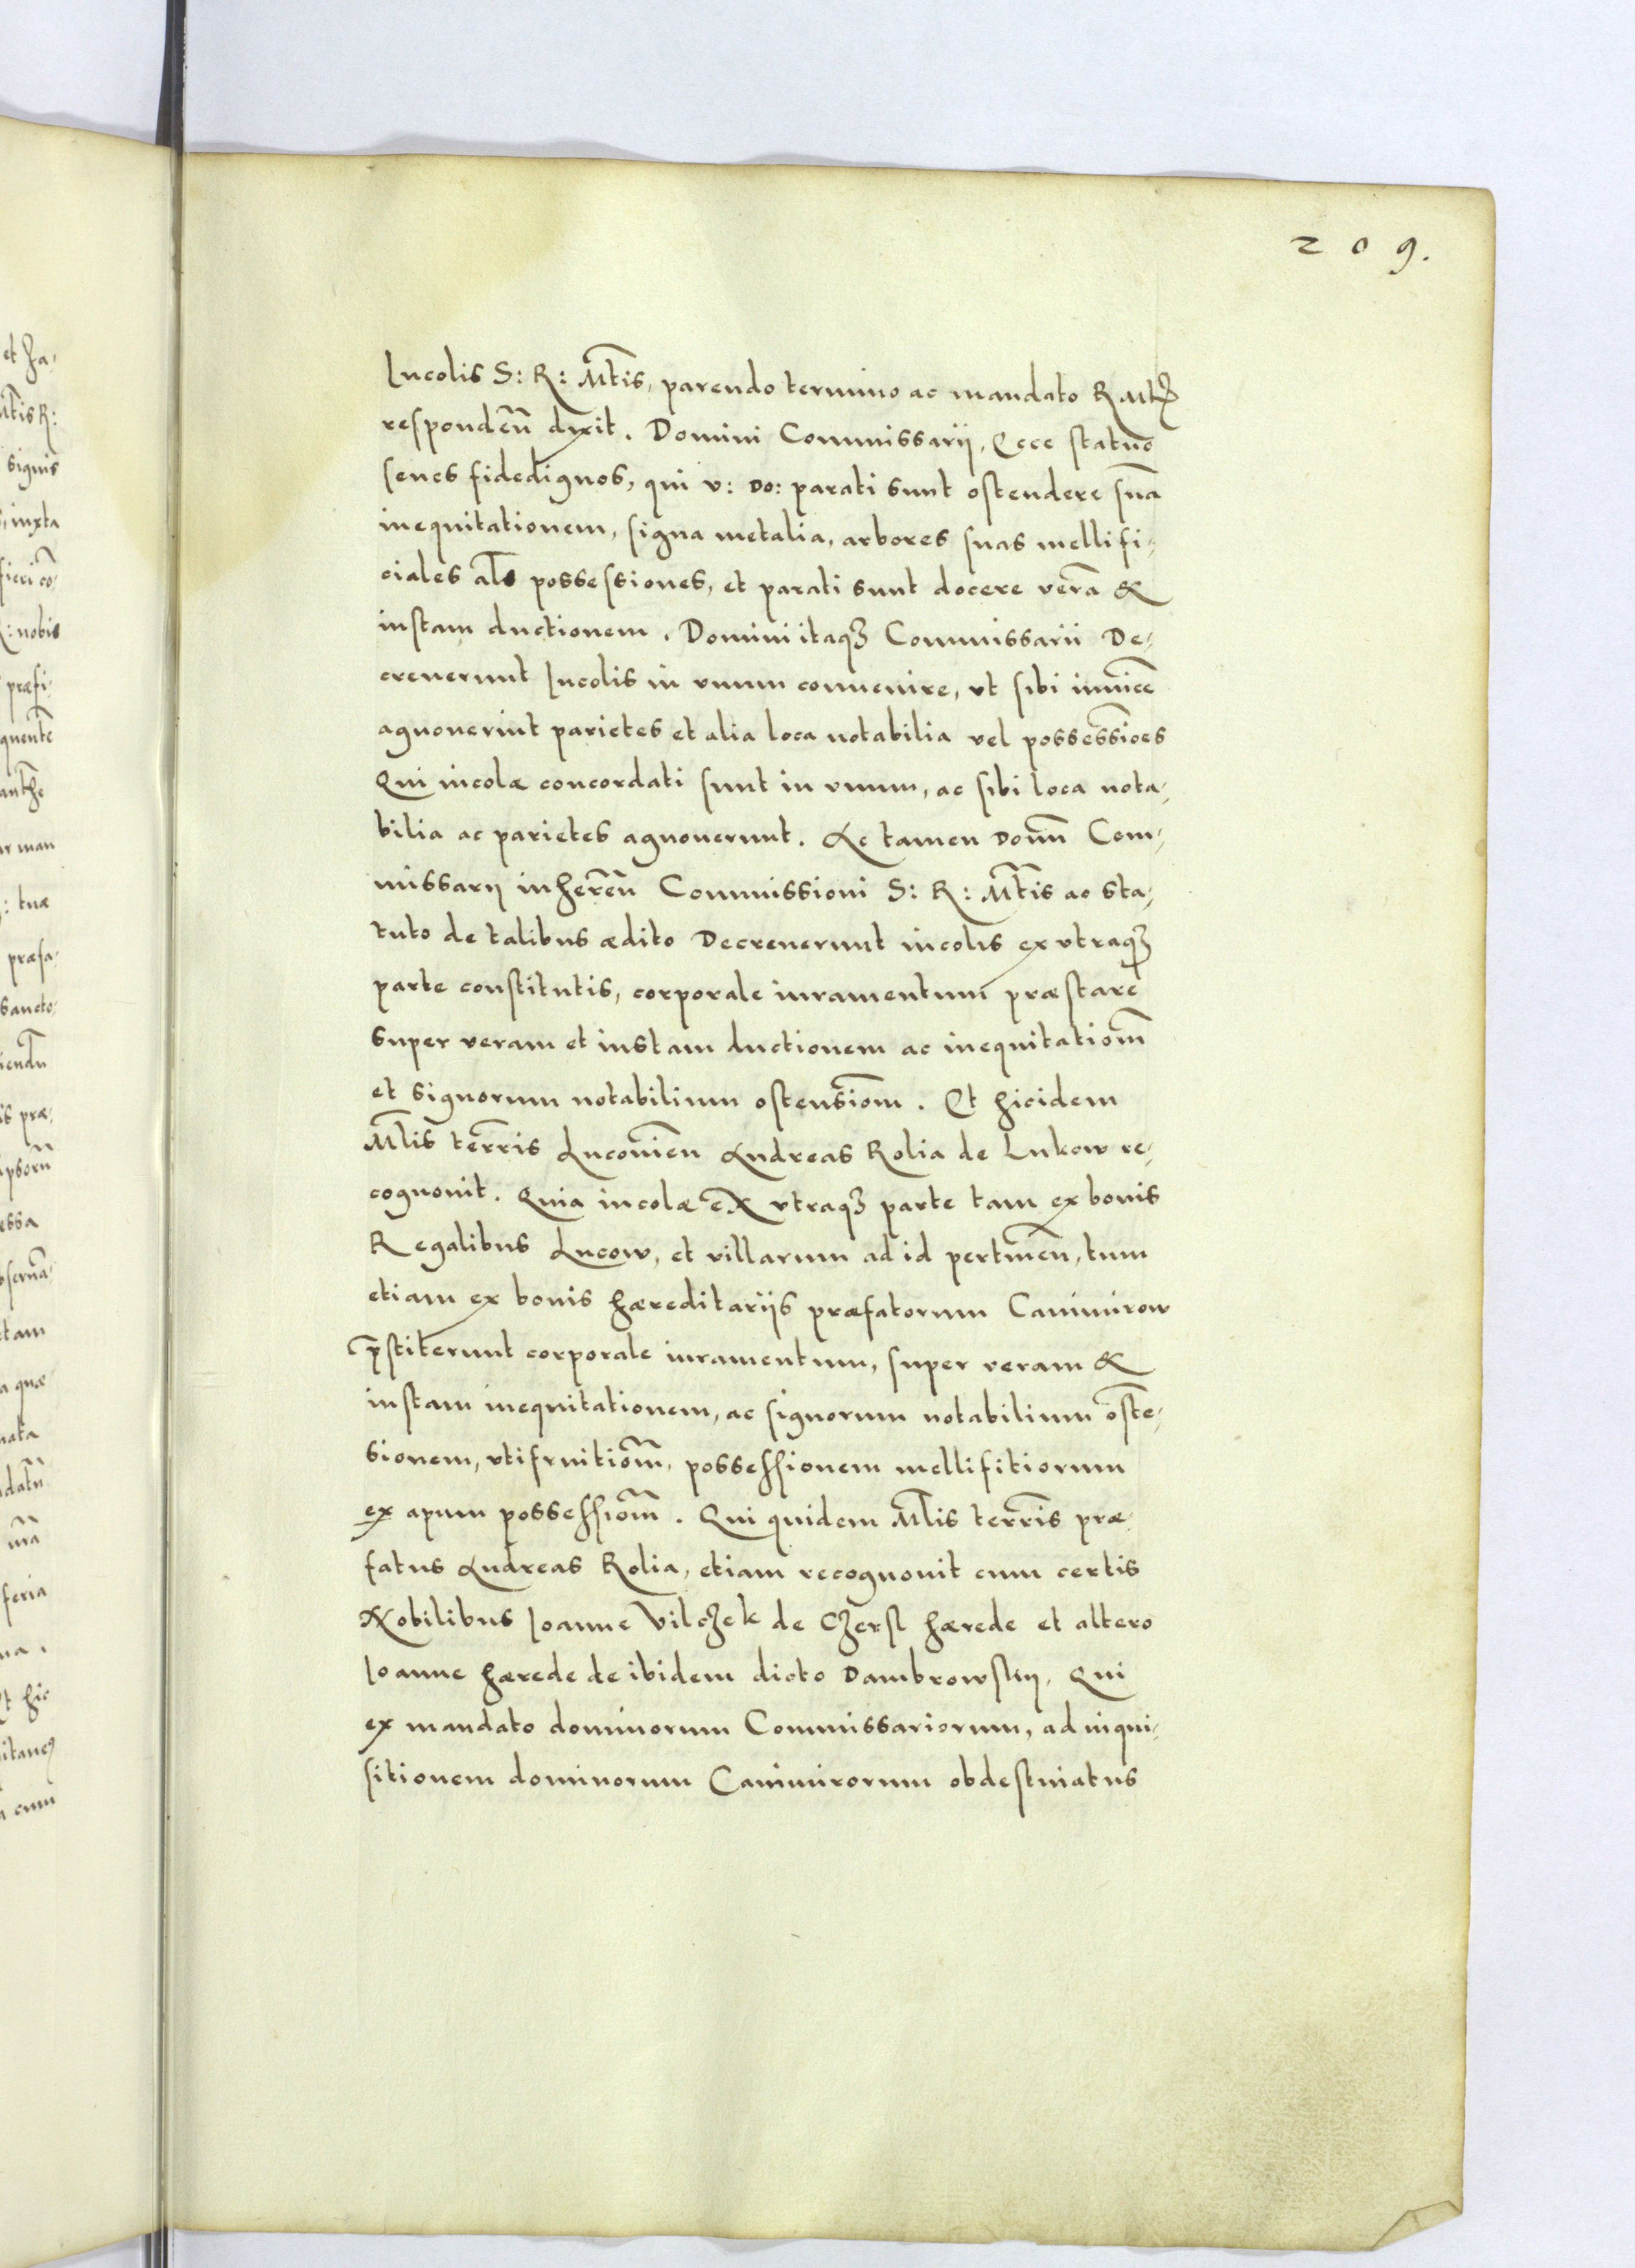 209.
Incolis S: R: Mt̃is, parendo termino ac mandato R Mtis
respondeñ dixit. Domini Commissarij, Ecce statuo
senes fidedignos, qui v: do: parati sunt ostendere suã
inequitationem, signa metalia, arbores suas mellifi-
ciales al̃s possessiones, et parati sunt docere verã &
iustam ductionem. Domini itaqȝ Commissarii De-
creuerunt Incolis in vnum conuenire, vt sibi inuicẽ
agnouerint parietes et alia loca notabilia vel possessio̅es
Qui incolæ concordati sunt in vnum, ac sibi loca nota-
bilia ac parietes agnouerunt. Ac tamen Domñ Com-
missarij inhereñ Commissioni S: R: Mt̃is ac sta-
tuto de talibus ædito Decreuerunt incolis ex vtraqȝ
parte constitutis, corporale iuramentum præstare
super veram et iustam ductionem ac inequitatiom̃
et signorum notabilium ostensiom̃. Et hicidem
Ml̃is terr̃is Lucouieñ Andreas Rolia de Lukow re-
cognouit. Quia incolæ ex vtraqȝ parte tam ex bonis
Regalibus Lucow, et villarum ad id pertineñ, tum
etiam ex bonis hæreditarijs præfatorum Canimirow
p̃stiterunt corporale iuramentum, super veram &
iustam inequitationem, ac signorum notabilium oste̅-
sionem, vtifruitiom̃, possessionem mellifitiorum
ex apum possessiom̃. Qui quidem Ml̃is terr̃is præ-
fatus Andreas Rolia, etiam recognouit cum certis
Nobilibus Ioanne Vilczek de Czersl hærede et altero
Ioanne hærede de ibidem dicto Dambrowskij, Qui
ex mandato dominorum Commissariorum, ad inqui-
sitionem dominorum Canimirorum obdestinatus
et ha-
Mt̃is R:
signis
iuxta
fieri co-
R: nobis
præfi-
quentẽ
man
: tuæ
præfa-
sancto-
is præ-
ipsorũ
essa
tam
a quæ
nata
datũ
feria
Et hic
cum